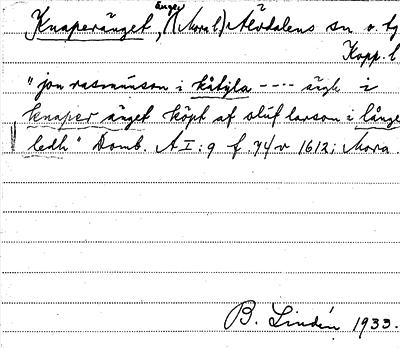 Knaperänget, änget (Mora l) Älvdalens sn o. tg
Kopp. l
"jon rasmunson i kåtzla ---- sigh i
knaper änget köpt af oluf larson i långe
ledh" Domb. A I: 9 f. 74v 1612; Mora.
B. Lindén 1933.